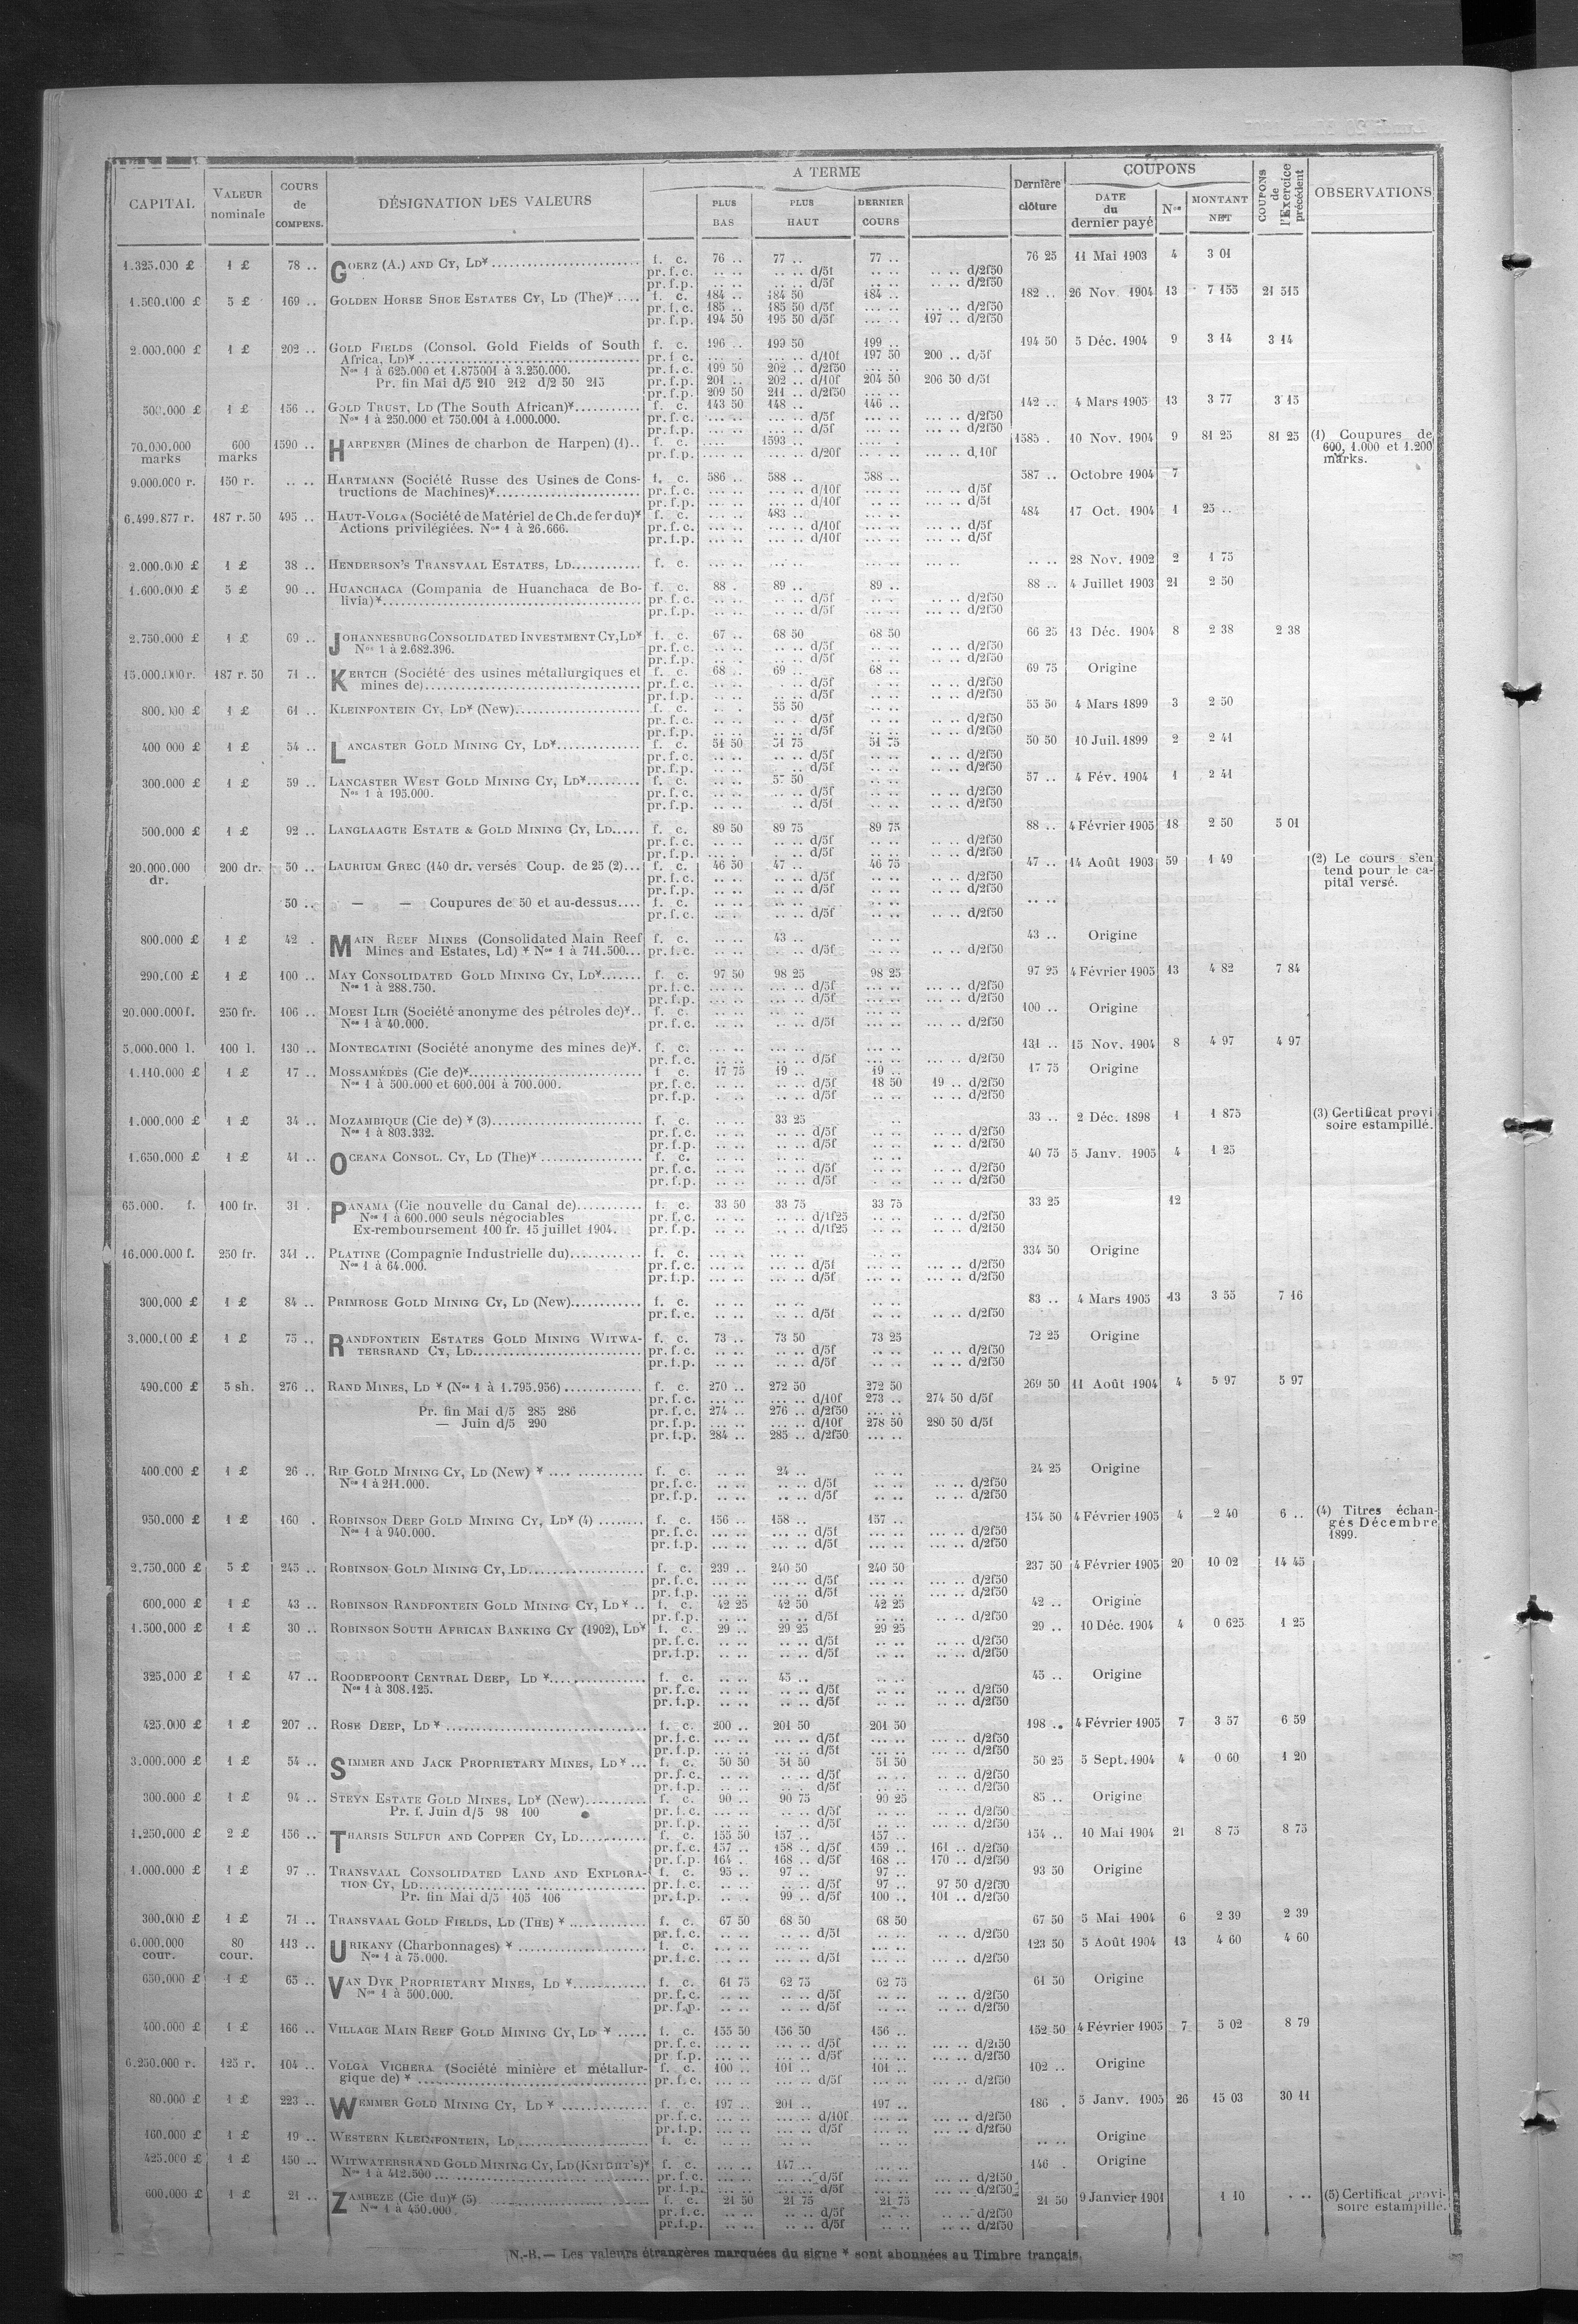 CAPITAL | VALEUR nominale | COURS de COMPENS. | DÉSIGNATION DES VALEURS | A TERME | PLUS BAS | PLUS HAUT | DERNIER COURS | Dernière clôture | COUPONS | DATE du dernier payé | Nos | MONTANT NET | COUPONS de l'Exercice précédent | OBSERVATIONS
1.325.000 £ 1 £ 78 .. GOERZ (A.) AND CY, LD* f. c. 76 .. 77 .. 77 .. 76 25 11 Mai 1903 4 3 01
pr. f. c. .. .. .. .. d/5f .. .. .. .. d/2f50
pr. f. p. .. .. .. .. d/5f .. .. .. .. d/2f50
1.500.000 £ 5 £ 169 .. GOLDEN HORSE SHOE ESTATES CY, LD (The)* .... f. c. 184 .. 184 50 184 .. 182 .. 26 Nov. 1904 13 7 155 21 515
pr. f. c. 185 .. 185 50 d/5f ... .. ... .. d/2f50
pr. f. p. 194 50 195 50 d/5f ... .. 197 .. d/2f50
2.000.000 £ 1 £ 202 .. GOLD FIELDS (Consol. Gold Fields of South f. c. 196 .. 199 50 199 .. 194 50 5 Déc. 1904 9 3 14 3 14
Africa, LD)* pr. f. c. ... .. ... .. d/10f 197 50 200 .. d/5f
Nos 1 à 625.000 et 1.875001 à 3.250.000. pr. f. c. 199 50 202 .. d/2f50 ... ..
Pr. fin Mai d/5 210 212 d/2 50 215 pr. f. p. 201 .. 202 .. d/10f 204 50 206 50 d/5f
pr. f. p. 209 50 211 .. d/2f50 ... ..
500.000 £ 1 £ 156 .. GOLD TRUST, LD (The South African)* f. c. 143 50 148 .. 146 .. 142 .. 4 Mars 1905 13 3 77 3 15
Nos 1 à 250.000 et 750.001 à 1.000.000. pr. f. c. ... .. ... .. d/5f ... .. ... .. d/2f50
pr. f. p. ... .. ... .. d/5f ... .. ... .. d/2f50
70.000.000 marks 600 marks 1590 .. HARPENER (Mines de charbon de Harpen) (1).. f. c. .... 1593 .. .. .. 1585 . 10 Nov. 1904 9 81 25 81 25 (1) Coupures de
pr. f. p. ... .. ... .. d/20f ... .. ... .. d,10f 600, 1.000 et 1.200
marks.
9.000.000 r. 150 r. .. .. HARTMANN (Société Russe des Usines de Cons- f. c. 586 .. 588 .. 588 .. 587 .. Octobre 1904 7
tructions de Machines)* pr. f. c. ... .. ... .. d/10f ... .. ... .. d/5f
pr. f. p. ... .. ... .. d/10f ... .. ... .. d/5f
6.499.877 r. 187 r. 50 495 .. HAUT-VOLGA (Société de Matériel de Ch. de fer du)* f. c. ... .. 483 .. ... .. 484 17 Oct. 1904 1 25 ..
Actions privilégiées. Nos 1 à 26.666. pr. f. c. ... .. ... .. d/10f ... .. ... .. d/5f
pr. f. p. ... .. ... .. d/10f ... .. ... .. d/5f
2.000.000 £ 1 £ 38 .. HENDERSON'S TRANSVAAL ESTATES, LD f. c. ... .. ... .. ... .. ... .. .. .. 28 Nov. 1902 2 1 75
1.600.000 £ 5 £ 90 .. HUANCHACA (Compania de Huanchaca de Bo- f. c. 88 . 89 .. 89 .. 88 .. 4 Juillet 1903 21 2 50
livia)* pr. f. c. .. .. .. .. d/5f .. .. ... .. d/2f50
pr. f. p. .. .. .. .. d/5f .. .. ... .. d/2f50
2.750.000 £ 1 £ 69 .. JOHANNESBURG CONSOLIDATED INVESTMENT CY, LD* f. c. 67 .. 68 50 68 50 66 25 13 Déc. 1904 8 2 38 2 38
Nos 1 à 2.682.396. pr. f. c. .. .. .. .. d/5f .. .. .. .. d/2f50
pr. f. p. .. .. .. .. d/5f .. .. .. .. d/2f50
15.000.000 r. 187 r. 50 71 .. KERTCH (Société des usines métallurgiques et f. c. 68 .. 69 .. 68 .. 69 75 Origine
mines de) pr. f. c. .. .. .. .. d/5f .. .. .. .. d/2f50
pr. f. p. .. .. .. .. d/5f .. .. .. .. d/2f50
800.000 £ 1 £ 61 .. KLEINFONTEIN CY, LD* (New) f. c. .. .. 55 50 .. .. 55 50 4 Mars 1899 3 2 50
pr. f. c. .. .. .. .. d/5f .. .. .. .. d/2f50
pr. f. p. .. .. .. .. d/5f .. .. .. .. d/2f50
400 000 £ 1 £ 54 .. LANCASTER GOLD MINING CY, LD* f. c. 51 50 51 75 51 75 50 50 10 Juil. 1899 2 2 41
pr. f. c. .. .. .. .. d/5f .. .. .. .. d/2f50
pr. f. p. .. .. .. .. d/5f .. .. .. .. d/2f50
300.000 £ 1 £ 59 .. LANCASTER WEST GOLD MINING CY, LD* f. c. .. .. 57 50 .. .. 57 .. 4 Fév. 1904 1 2 41
Nos 1 à 195.000. pr. f. c. .. .. .. .. d/5f .. .. .. .. d/2f50
pr. f. p. .. .. .. d/5f .. .. .. .. d/2f50
500.000 £ 1 £ 92 .. LANGLAAGTE ESTATE & GOLD MINING CY, LD f. c. 89 50 89 75 89 75 88 .. 4 Février 1905 18 2 50 5 01
pr. f. c. .. .. .. .. d/5f .. .. .. .. d/2f50
pr. f. p. .. .. .. .. d/5f .. .. .. .. d/2f50
20.000.000 dr. 200 dr. 50 .. LAURIUM GREC (140 dr. versés Coup. de 25 (2)... f. c. 46 50 47 .. 46 75 47 .. 14 Août 1903 59 1 49 (2) Le cours s'en
pr. f. c. .. .. .. .. d/5f .. .. .. .. d/2f50 tend pour le ca-
pr. f. p. .. .. .. .. d/5f .. .. .. .. d/2f50 pital versé.
50 .. — — Coupures de 50 et au-dessus.... f. c. .. .. .. .. .. .. .. ..
pr. f. c. .. .. .. .. d/5f .. .. .. .. d/2f50
800.000 £ 1 £ 42 . MAIN REEF MINES (Consolidated Main Reef f. c. .. .. 43 .. .. .. 43 .. Origine
Mines and Estates, Ld) * Nos 1 à 711.500... pr. f. c. .. .. .. .. d/5f .. .. .. .. d/2f50
290.000 £ 1 £ 100 .. MAY CONSOLIDATED GOLD MINING CY, LD* f. c. 97 50 98 25 98 25 97 25 4 Février 1905 13 4 82 7 84
Nos 1 à 288.750. pr. f. c. ... .. ... .. d/5f ... .. ... .. d/2f50
pr. f. p. ... .. ... .. d/5f ... .. ... .. d/2f50
20.000.000 f. 250 fr. 106 .. MOESI ILIR (Société anonyme des pétroles de)*.. f. c. .. .. .. .. .. .. 100 .. Origine
Nos 1 à 40.000. pr. f. c. .. .. .. .. d/5f .. .. ... .. d/2f50
5.000.000 l. 100 l. 130 .. MONTECATINI (Société anonyme des mines de)*. f. c. ... .. ... .. ... .. 131 .. 15 Nov. 1904 8 4 97 4 97
pr. f. c. ... .. ... .. d/5f ... .. ... .. d/2f50
1.110.000 £ 1 £ 17 .. MOSSAMÉDÈS (Cie de)* f. c. 17 75 19 .. 19 .. 17 75 Origine
Nos 1 à 500.000 et 600.001 à 700.000. pr. f. c. .. .. .. .. d/5f 18 50 19 .. d/2f50
pr. f. p. .. .. .. .. d/5f .. .. .. .. d/2f50
1.000.000 £ 1 £ 34 .. MOZAMBIQUE (Cie de) * (3) f. c. .. .. 33 25 .. 33 .. 2 Déc. 1898 1 1 875 (3) Certificat provi
Nos 1 à 803.332. pr. f. c. .. .. .. .. d/5f .. .. .. .. d/2f50 soire estampillé.
pr. f. p. .. .. .. .. d/5f .. .. .. .. d/2f50
1.650.000 £ 1 £ 41 .. OCEANA CONSOL. CY, LD (The)* f. c. .. .. .. .. .. .. 40 75 5 Janv. 1905 4 1 25
pr. f. c. .. .. .. .. d/5f .. .. .. .. d/2f50
pr. f. p. .. .. .. .. d/5f .. .. .. .. d/2f50
65.000. f. 100 fr. 31 . PANAMA (Cie nouvelle du Canal de) f. c. 33 50 33 75 33 75 33 25 12
Nos 1 à 600.000 seuls négociables pr. f. c. .. .. .. .. d/1f25 .. .. .. .. d/2f50
Ex-remboursement 100 fr. 15 juillet 1904. pr. f. p. .. .. .. .. d/1f25 .. .. .. .. d/2f50
16.000.000 f. 250 fr. 341 .. PLATINE (Compagnie Industrielle du) f. c. ... .. ... .. ... .. 334 50 Origine
Nos 1 à 64.000. pr. f. c. ... .. ... .. d/5f ... .. ... .. d/2f50
pr. f. p. ... .. ... .. d/5f ... .. ... .. d/2f50
300.000 £ 1 £ 84 .. PRIMROSE GOLD MINING CY, LD (New) f. c. .. .. .. .. .. .. 83 .. 4 Mars 1905 13 3 55 7 16
pr. f. c. .. .. .. .. d/5f .. .. .. .. d/2f50
3.000.000 £ 1 £ 75 .. RANDFONTEIN ESTATES GOLD MINING WITWA- f. c. 73 .. 73 50 73 25 72 25 Origine
TERSRAND CY, LD pr. f. c. .. .. .. .. d/5f .. .. .. .. d/2f50
pr. f. p. .. .. .. .. d/5f .. .. .. .. d/2f50
490.000 £ 5 sh. 276 .. RAND MINES, LD * (Nos 1 à 1.795.956) f. c. 270 .. 272 50 272 50 269 50 11 Août 1904 4 5 97 5 97
pr. f. c. ... .. ... .. d/10f 273 .. 274 50 d/5f
Pr. fin Mai d/5 285 286 pr. f. c. 274 .. 276 .. d/2f50 ... ..
— Juin d/5 290 pr. f. p. ... .. ... .. d/10f 278 50 280 50 d/5f
pr. f. p. 284 .. 285 .. d/2f50 ... ..
400.000 £ 1 £ 26 .. RIP GOLD MINING CY, LD (New) * f. c. .. .. 24 .. .. .. 24 25 Origine
Nos 1 à 211.000. pr. f. c. .. .. .. .. d/5f .. .. .. .. d/2f50
pr. f. p. .. .. .. .. d/5f .. .. .. .. d/2f50
950.000 £ 1 £ 160 . ROBINSON DEEP GOLD MINING CY, LD* (4) f. c. 156 .. 158 .. 157 .. 154 50 4 Février 1905 4 2 40 6 .. (4) Titres échan-
Nos 1 à 940.000. pr. f. c. ... .. ... .. d/5f ... .. ... .. d/2f50 gés Décembre
pr. f. p. ... .. ... .. d/5f ... .. ... .. d/2f50 1899.
2.750.000 £ 5 £ 245 .. ROBINSON GOLD MINING CY, LD f. c. 239 .. 240 50 240 50 237 50 4 Février 1905 20 10 02 14 45
pr. f. c. ... .. ... .. d/5f ... .. ... .. d/2f50
pr. f. p. ... .. ... .. d/5f ... .. ... .. d/2f50
600.000 £ 1 £ 43 .. ROBINSON RANDFONTEIN GOLD MINING CY, LD * .. f. c. 42 25 42 50 42 25 42 .. Origine
pr. f. p. .. .. .. .. d/5f .. .. .. .. d/2f50
1.500.000 £ 1 £ 30 .. ROBINSON SOUTH AFRICAN BANKING CY (1902), LD* f. c. 29 .. 29 25 29 25 29 .. 10 Déc. 1904 4 0 625 1 25
pr. f. c. .. .. .. .. d/5f .. .. .. .. d/2f50
pr. f. p. .. .. .. .. d/5f .. .. .. .. d/2f50
325.000 £ 1 £ 47 .. ROODEPOORT CENTRAL DEEP, LD * f. c. .. .. 45 .. .. .. 45 .. Origine
Nos 1 à 308.125. pr. f. c. .. .. .. .. d/5f .. .. .. .. d/2f50
pr. f. p. .. .. .. .. d/5f .. .. .. .. d/2f50
425.000 £ 1 £ 207 .. ROSE DEEP, LD * f. c. 200 .. 201 50 201 50 198 .. 4 Février 1905 7 3 57 6 59
pr. f. c. ... .. ... .. d/5f ... .. ... .. d/2f50
pr. f. p. ... .. ... .. d/5f ... .. ... .. d/2f50
3.000.000 £ 1 £ 54 .. SIMMER AND JACK PROPRIETARY MINES, LD * ... f. c. 50 50 51 50 51 50 50 25 5 Sept. 1904 4 0 60 1 20
pr. f. c. .. .. .. .. d/5f .. .. .. .. d/2f50
pr. f. p. .. .. .. .. d/5f .. .. .. .. d/2f50
300.000 £ 1 £ 94 .. STEYN ESTATE GOLD MINES, LD* (New) f. c. 90 .. 90 75 90 25 85 .. Origine
Pr. f. Juin d/5 98 100 pr. f. c. ... .. .. .. d/5f .. .. .. .. d/2f50
pr. f. p. .. .. .. .. d/5f .. .. .. .. d/2f50
1.250.000 £ 2 £ 156 .. THARSIS SULFUR AND COPPER CY, LD f. c. 155 50 157 .. 157 .. 154 .. 10 Mai 1904 21 8 75 8 75
pr. f. c. 157 .. 158 .. d/5f 159 .. 161 .. d/2f50
pr. f. p. 164 . 168 .. d/5f 168 .. 170 .. d/2f50
1.000.000 £ 1 £ 97 .. TRANSVAAL CONSOLIDATED LAND AND EXPLORA- f. c. 95 .. 97 .. 97 .. 93 50 Origine
TION CY, LD pr. f. c. .. .. .. .. d/5f 97 .. 97 50 d/2f50
Pr. fin Mai d/5 105 106 pr. f. p. .. .. 99 .. d/5f 100 .. 101 .. d/2f50
300.000 £ 1 £ 71 .. TRANSVAAL GOLD FIELDS, LD (THE) * f. c. 67 50 68 50 68 50 67 50 5 Mai 1904 6 2 39 2 39
pr. f. c. .. .. .. .. d/5f .. .. .. .. d/2f50
6.000.000 cour. 80 cour. 113 .. URIKANY (Charbonnages) * f. c. ... .. ... .. ... .. 123 50 5 Août 1904 13 4 60 4 60
Nos 1 à 75.000. pr. f. c. ... .. ... .. d/5f ... .. ... .. d/2f50
650.000 £ 1 £ 65 .. VAN DYK PROPRIETARY MINES, LD * f. c. 61 75 62 75 62 75 61 50 Origine
Nos 1 à 500.000. pr. f. c. .. .. .. .. d/5f .. .. .. .. d/2f50
pr. f. p. .. .. .. .. d/5f .. .. .. .. d/2f50
400.000 £ 1 £ 166 .. VILLAGE MAIN REEF GOLD MINING CY, LD * f. c. 155 50 156 50 156 .. 152 50 4 Février 1905 7 5 02 8 79
pr. f. c. ... .. ... .. d/5f ... .. ... .. d/2f50
pr. f. p. ... .. ... .. d/5f ... .. ... .. d/2f50
6.250.000 r. 125 r. 104 .. VOLGA VICHERA (Société minière et métallur- f. c. 100 .. 101 .. 101 .. 102 .. Origine
gique de) * pr. f. c. ... .. ... .. d/5f ... .. ... .. d/2f50
80.000 £ 1 £ 223 .. WEMMER GOLD MINING CY, LD * f. c. 197 .. 201 .. 197 .. 186 . 5 Janv. 1905 26 15 03 30 11
pr. f. c. ... .. ... .. d/10f ... .. ... .. d/2f50
pr. f. p. ... .. ... .. d/5f ... .. ... .. d/2f50
160.000 £ 1 £ 19 .. WESTERN KLEINFONTEIN, LD f. c. .. .. .. .. .. .. .. .. Origine
425.000 £ 1 £ 150 .. WITWATERSRAND GOLD MINING CY, LD (KNIGHT'S)* f. c. ... .. 147 .. ... .. 146 . Origine
Nos 1 à 412.500 pr. f. c. ... .. ... .. d/5f ... .. ... .. d/2f50
pr. f. p. ... .. ... .. d/5f ... .. ... .. d/2f50
600.000 £ 1 £ 21 .. ZAMBEZE (Cie du)* (5) f. c. 21 50 21 75 21 75 21 50 9 Janvier 1901 1 10 . .. (5) Certificat provi-
Nos 1 à 450.000. pr. f. c. .. .. .. .. d/5f .. .. .. .. d/2f50 soire estampillé.
pr. f. p. .. .. .. .. d/5f .. .. .. .. d/2f50
N.-B. — Les valeurs étrangères marquées du signe * sont abonnées au Timbre français.